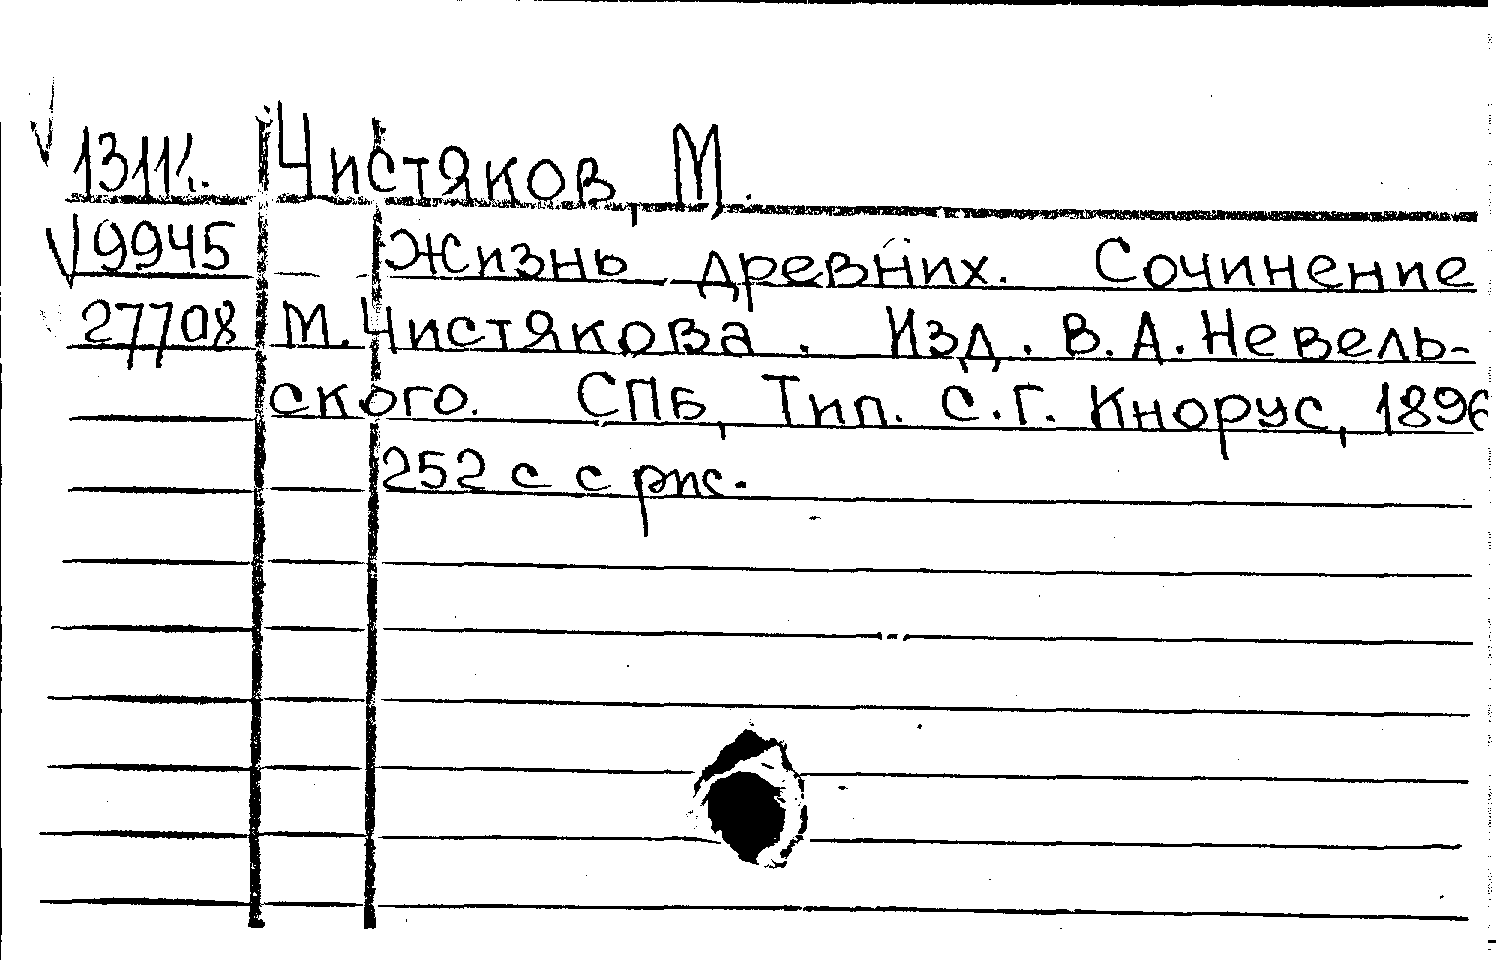 Чистяков, М.
√ 9945 Жизнь древних. Сочинение
27708 М. Чистякова. Изд. В.А. Невель-
ского. СПБ, Тип. С.Г. Кнорус, 1896
252 с с рис.